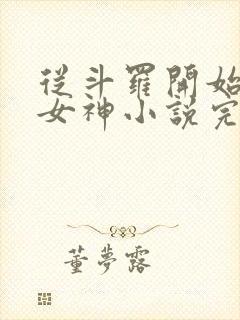 從斗羅開始
女神小說完
董夢露